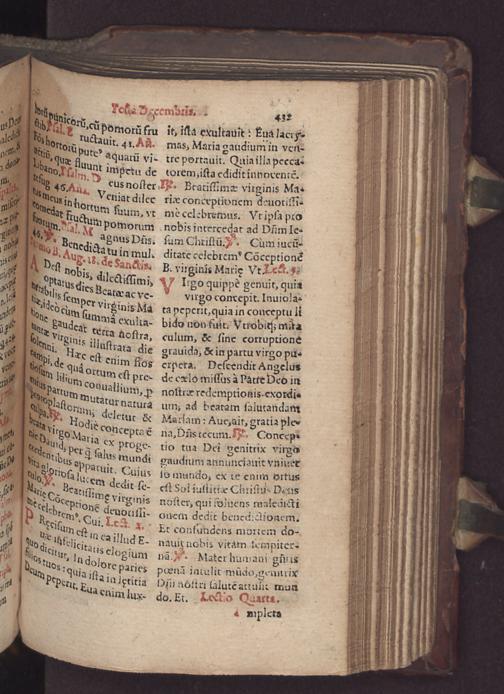 Festa Decembris.
432
horū punicorū, cū pomorū fru
ctib. Psal. E ructauit. 41. Añ.
Fōs hortorū puteꝰ aquarū vi-
uētiū, quæ fluunt impetu de
Libano. Psal. D eus noster
refug. 46. Aña. Veniat dilec
tus meus in hortum suum, vt
comedat fructum pomorum
suorum. Psal. M agnus Dñs.
46. ℣. Benedicta tu in mul.
Sermo B. Aug. 18. de Sanctis.
A Dest nobis, dilectissimi,
optatus dies Beatæ ac ve-
nerabilis semper virginis Ma
riæ, ideo cum summa exulta-
tione gaudeat terra nostra,
tantæ virginis illustrata die
solenni. Hæc est enim flos
campi, de qua ortum est pre-
tiosum lilium conuallium, ꝑ
cuius partum mutatur natura
protoplastorum, deletur &
culpa. ℟. Hodie concepta ē
beata virgo Maria ex proge-
nie Dauid, per quā salus mundi
credentibus apparuit. Cuius
vita gloriosa lucem dedit se-
culo. ℣. Beatissimę virginis
Marię Cōceptionē deuotissi-
me celebremꝰ. Cui. Lect. 2.
P Recisum est in ea illud E-
uæ infelicitatis elogium
quo dicitur, In dolore paries
filios tuos: quia ista in lętitia
Deum peperit. Eua enim lux-
it, ista exultauit: Eua lacry-
mas, Maria gaudium in ven-
tre portauit. Quia illa pecca-
torem, ista edidit innocentē.
℟. Beatissimæ virginis Ma-
riæ conceptionem deuotissi-
mè celebremus. Vt ipsa pro
nobis intercedat ad Dñm Ie-
sum Christū. ℣. Cum iucū-
ditate celebremꝰ Cōceptionē
B. virginis Marię Vt. Lect. 3.
V Irgo quippè genuit, quia
virgo concepit. Inuiola-
ta peperit, quia in conceptu li
bido non fuit. Vtrobiq; mira
culum, & sine corruptione
grauida, & in partu virgo pu-
erpera. Descendit Angelus
de cælo missus à Patre Deo in
nostræ redemptionis exordi-
um, ad beatam salutandam
Mariam: Aue, ait, gratia ple-
na, Dñs tecum. ℟. Concep-
tio tua Dei genitrix virgo
gaudium annunciauit vniuer
so mundo, ex te enim ortus
est Sol iustitiæ Christus Deus
noster, qui soluens maledicti
onem dedit benedictionem.
Et confundens mortem do-
nauit nobis vitam sempiter-
nā. ℣. Mater humani gñris
pœnā intulit mūdo, genitrix
Dñi nostri salutē attulit mun
do. Et. Lectio Quarta.
A mpleta